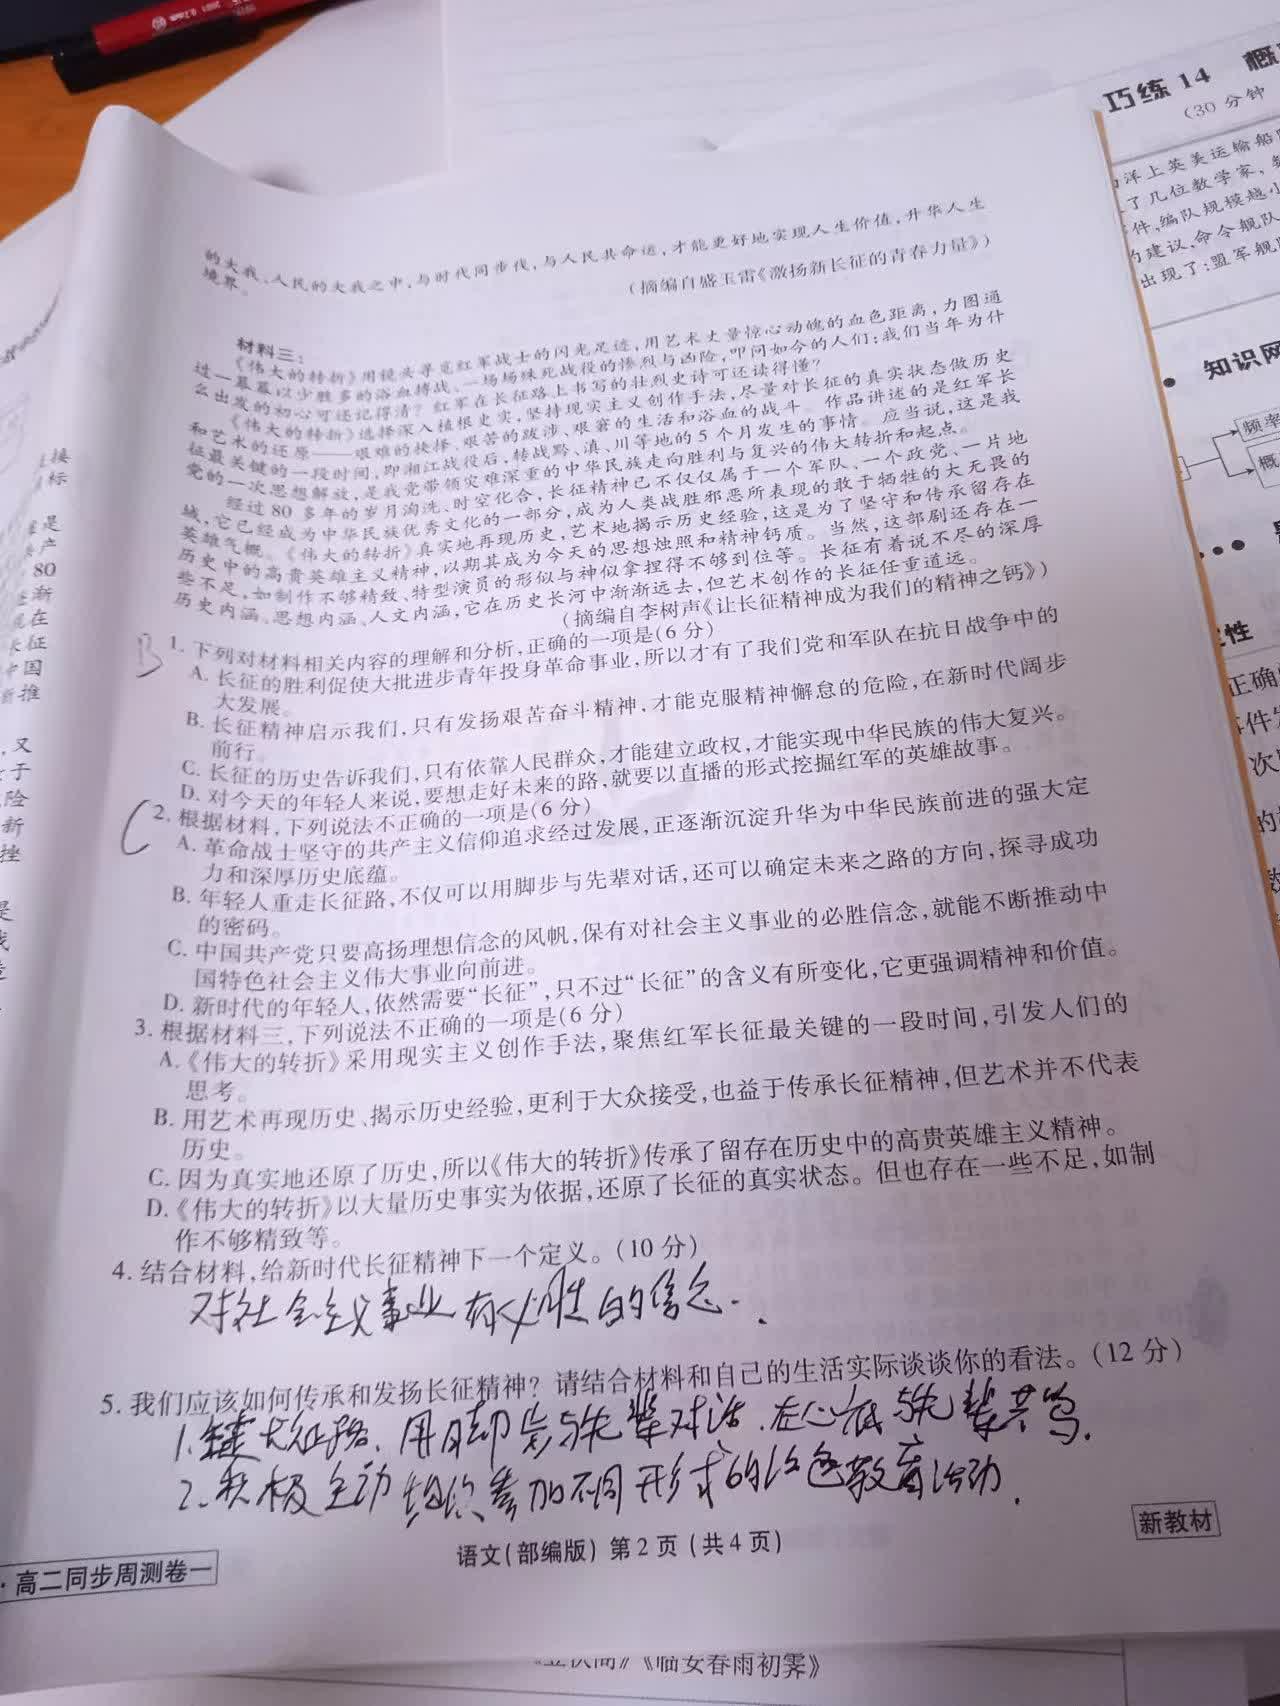 巧练14 概
(30分钟
洋上英美运输船
了几位数学家,
件,编队规模越小
建议,命令舰队
出现了:盟军舰
知识网
频率
概
的大我、人民的大我之中,与时代同步伐,与人民共命运,才能更好地实现人生价值,升华人生
境界。
(摘编自盛玉雷《激扬新长征的青春力量》)
材料三:
《伟大的转折》用镜头寻觅红军战士的闪光足迹,用艺术丈量惊心动魄的血色距离,力图通
过一幕幕以少胜多的浴血搏战、一场场殊死战役的惨烈与凶险,叩问如今的人们:我们当年为什
么出发的初心可还记得清?红军在长征路上书写的壮烈史诗可还读得懂?
《伟大的转折》选择深入植根史实,坚持现实主义创作手法,尽量对长征的真实状态做历史
和艺术的还原——艰难的抉择、艰苦的跋涉、艰窘的生活和浴血的战斗。作品讲述的是红军长
征最关键的一段时间,即湘江战役后,转战黔、滇、川等地的5个月发生的事情。应当说,这是我
党的一次思想解放,是我党带领灾难深重的中华民族走向胜利与复兴的伟大转折和起点。
经过80多年的岁月淘洗、时空化合,长征精神已不仅仅属于一个军队、一个政党、一片地
域,它已经成为中华民族优秀文化的一部分,成为人类战胜邪恶所表现的敢于牺牲的大无畏的
英雄气概。《伟大的转折》真实地再现历史,艺术地揭示历史经验,这是为了坚守和传承留存在
历史中的高贵英雄主义精神,以期其成为今天的思想烛照和精神钙质。当然,这部剧还存在一
些不足,如制作不够精致、特型演员的形似与神似拿捏得不够到位等。长征有着说不尽的深厚
历史内涵、思想内涵、人文内涵,它在历史长河中渐渐远去,但艺术创作的长征任重道远。
(摘编自李树声《让长征精神成为我们的精神之钙》)
B 1. 下列对材料相关内容的理解和分析,正确的一项是(6分)
A. 长征的胜利促使大批进步青年投身革命事业,所以才有了我们党和军队在抗日战争中的
大发展。
B. 长征精神启示我们,只有发扬艰苦奋斗精神,才能克服精神懈怠的危险,在新时代阔步
前行。
C. 长征的历史告诉我们,只有依靠人民群众,才能建立政权,才能实现中华民族的伟大复兴。
D. 对今天的年轻人来说,要想走好未来的路,就要以直播的形式挖掘红军的英雄故事。
C 2. 根据材料,下列说法不正确的一项是(6分)
A. 革命战士坚守的共产主义信仰追求经过发展,正逐渐沉淀升华为中华民族前进的强大定
力和深厚历史底蕴。
B. 年轻人重走长征路,不仅可以用脚步与先辈对话,还可以确定未来之路的方向,探寻成功
的密码。
C. 中国共产党只要高扬理想信念的风帆,保有对社会主义事业的必胜信念,就能不断推动中
国特色社会主义伟大事业向前进。
D. 新时代的年轻人,依然需要“长征”,只不过“长征”的含义有所变化,它更强调精神和价值。
3. 根据材料三,下列说法不正确的一项是(6分)
A.《伟大的转折》采用现实主义创作手法,聚焦红军长征最关键的一段时间,引发人们的
思考。
B. 用艺术再现历史、揭示历史经验,更利于大众接受,也益于传承长征精神,但艺术并不代表
历史。
C. 因为真实地还原了历史,所以《伟大的转折》传承了留存在历史中的高贵英雄主义精神。
D.《伟大的转折》以大量历史事实为依据,还原了长征的真实状态。但也存在一些不足,如制
作不够精致等。
4. 结合材料,给新时代长征精神下一个定义。(10分)
对社会主义事业有必胜的信念.
5. 我们应该如何传承和发扬长征精神?请结合材料和自己的生活实际谈谈你的看法。(12分)
1.重走长征路、用脚步与先辈对话.在心底与先辈共鸣.
2.积极主动组织参加不同形式的红色教育活动.
新教材
语文(部编版) 第2页(共4页)
·高二同步周测卷一
《临安春雨初霁》